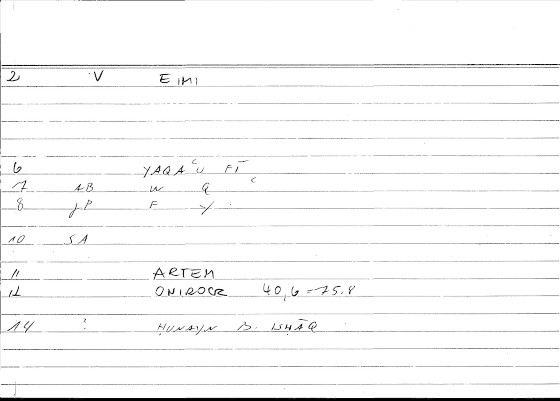 2 V EIMI
6 YAQAʿU FĪ
7 AB W Q ʿ
8 JP F Y
10 SA
11 ARTEM
12 ONIROCR 40,6 = 75.8
14 : ḤUNAYN B. ISḤĀQ